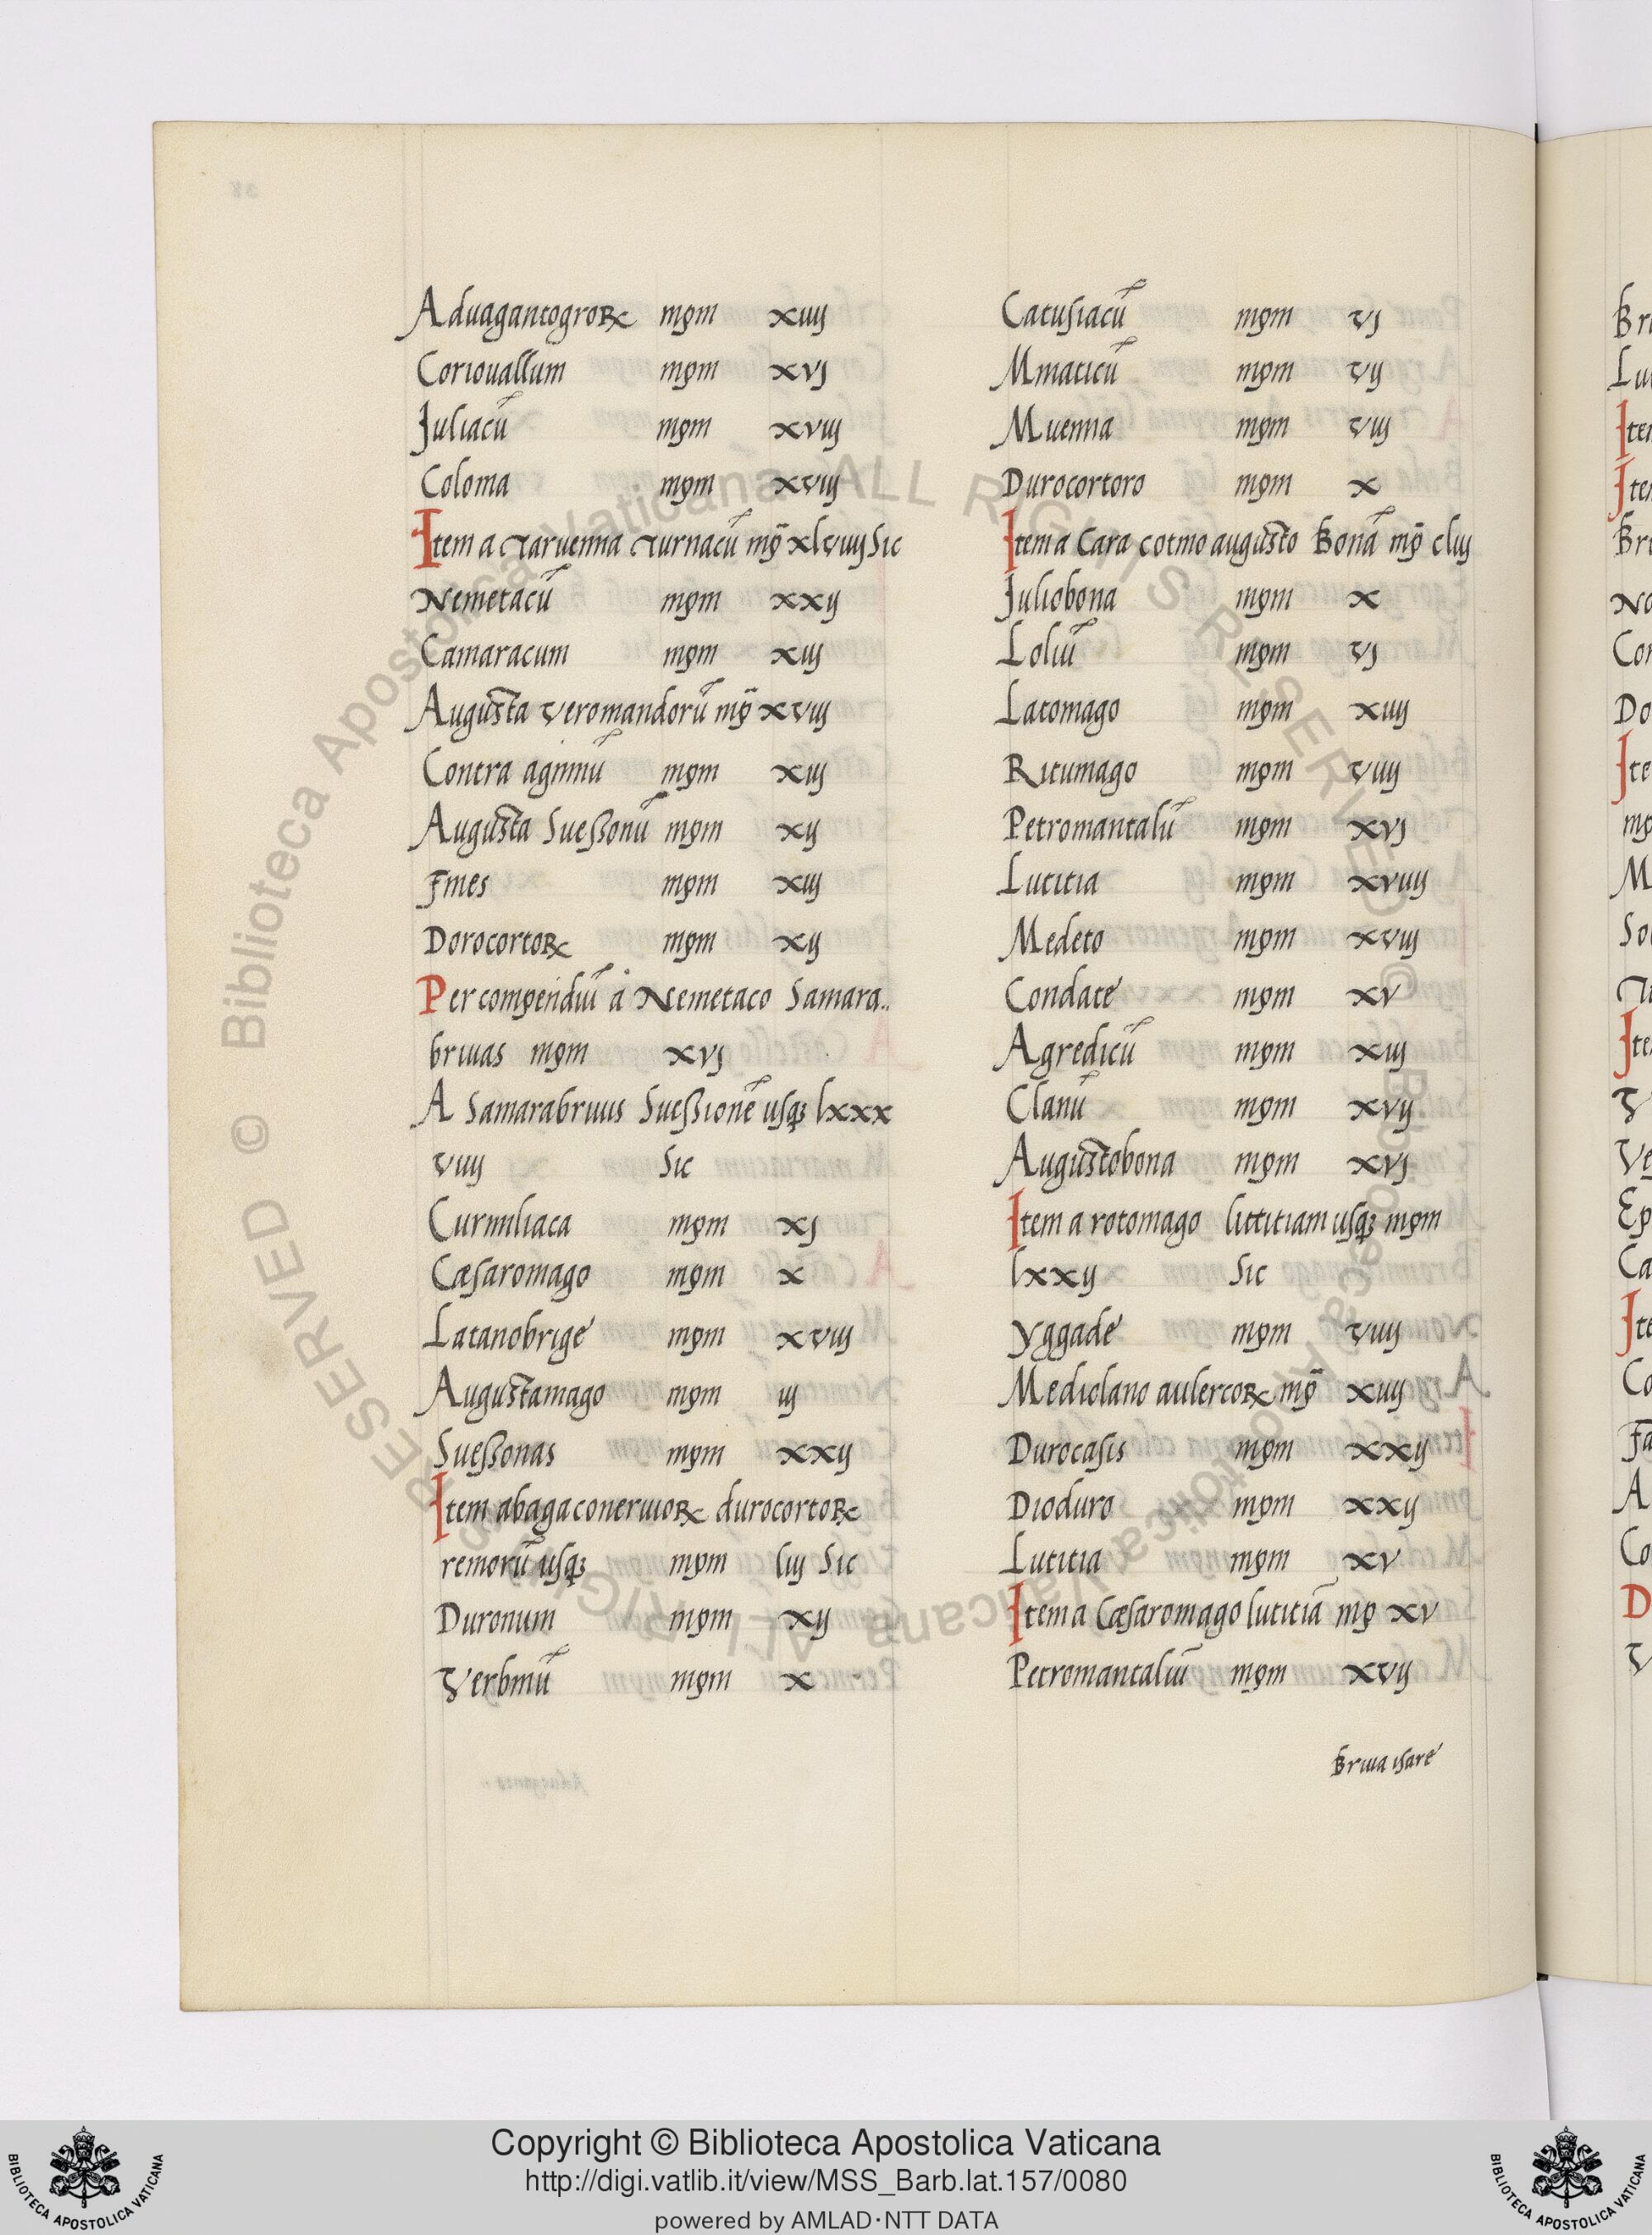 Aduagantogroꝝ mpm xiiij
Coriouallum mpm xvj
Juliacū mpm xviij
Colonia mpm xviij
Item a Taruenna Turnacū mp̄ xlviiij Sic
Nemetacū mpm xxij
Camaracum mpm xiij
Augusta veromandorū mp̄ xviij
Contra aginnū mpm xiij
Augusta Sueßonū mpm xij
Fines mpm xiij
Dorocortoꝝ mpm xij
Per compendiū á Nemetaco Samara..
briuas mpm xvj
A Samarabriuis Sueßionē usqꝫ lxxx
viiij Sic
Curmiliaca mpm xj
Cæsaromago mpm x
Latanobrige mpm xviij
Augustamago mpm iij
Sueßonas mpm xxij
Item abagaconeruioꝝ durocortoꝝ
remorū usqꝫ mpm liij Sic
Duronum mpm xij
Verbinū mpm x
Catusiacū mpm vj
Minaticū mpm vij
Muenna mpm viij
Durocortoro mpm x
Item a Cara cotino augusto Bonā mp̄ cliij
Juliobona mpm x
Loliū mpm vj
Latomago mpm xiiij
Ritumago mpm viiij
Petromantalū mpm xvj
Lutitia mpm xviiij
Medeto mpm xviij
Condate mpm xv
Agredicū mpm xiij
Clanū mpm xvij
Augustobona mpm xvj
Item a rotomago lutitiam usqꝫ mpm
lxxij Sic
Yggade mpm viiij
Mediolano aulercoꝝ mp̄ xiiij
Durocasis mpm xxij
Dioduro mpm xxij
Lutitia mpm xv
Item a Cæsaromago lutitiā mp xv
Petromantaliū mpm xvij
Briua isare
Copyright © Biblioteca Apostolica Vaticana
http://digi.vatlib.it/view/MSS_Barb.lat.157/0080
powered by AMLAD·NTT DATA